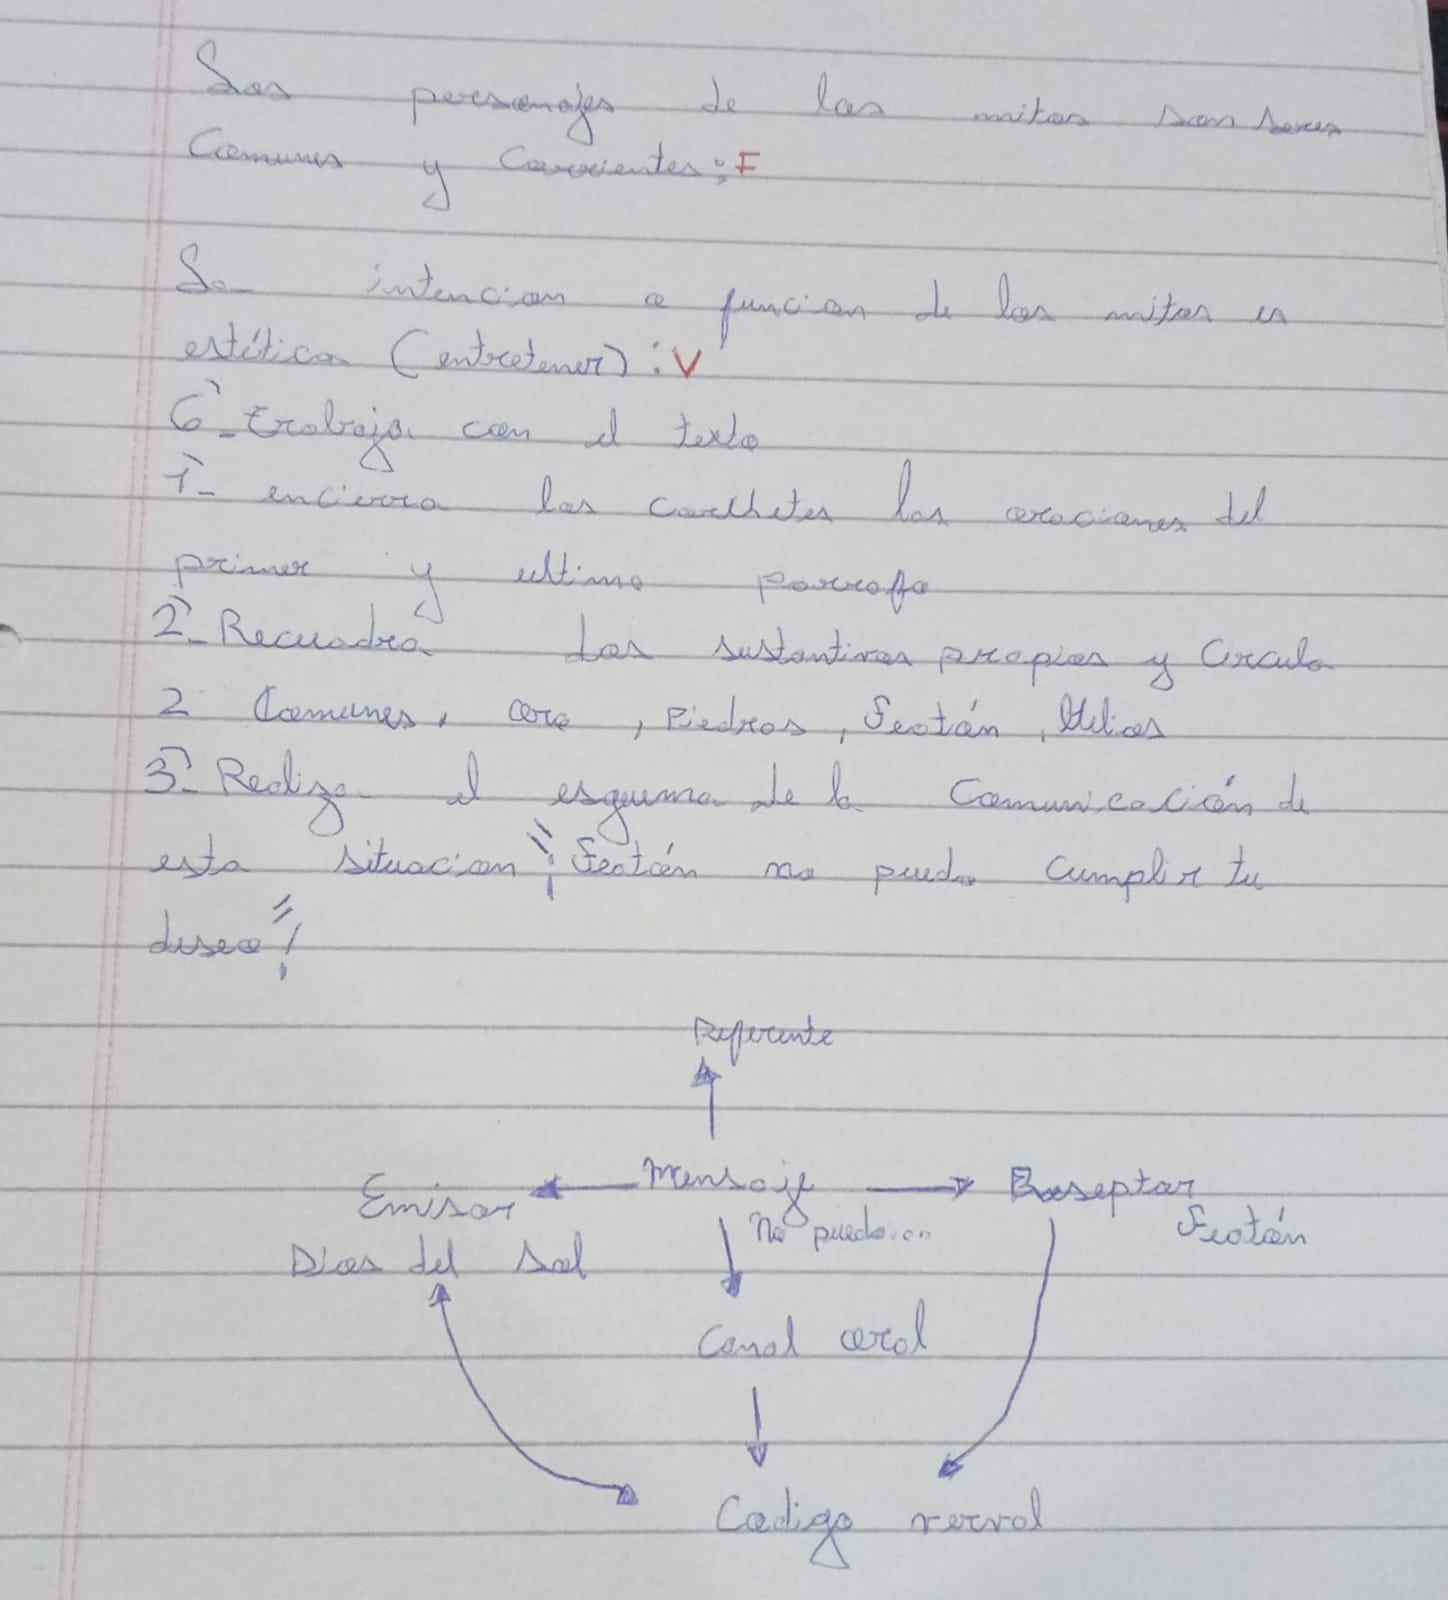 Los personajes de los mitos son seres
Comunes y Corrientes: F
La intencion o funcion de los mitos es
estética (entretener): V
6- trabaja con el texto
1- encierra los corchetes las oraciones del
primer y ultimo parrafo
2- Recuadra Los sustantivos propios y Circula
2 Comunes, oro, Piedras, Feotán, Helios
3- Realiza el esquema de la Comunicación de
esta situacion "¡Feotán no puedo Cumplir tu
deseo"!
Referente
Emisor Mensaje Reseptor
No puedo Feotán
Dios del Sol
Canal oral
Codigo verval